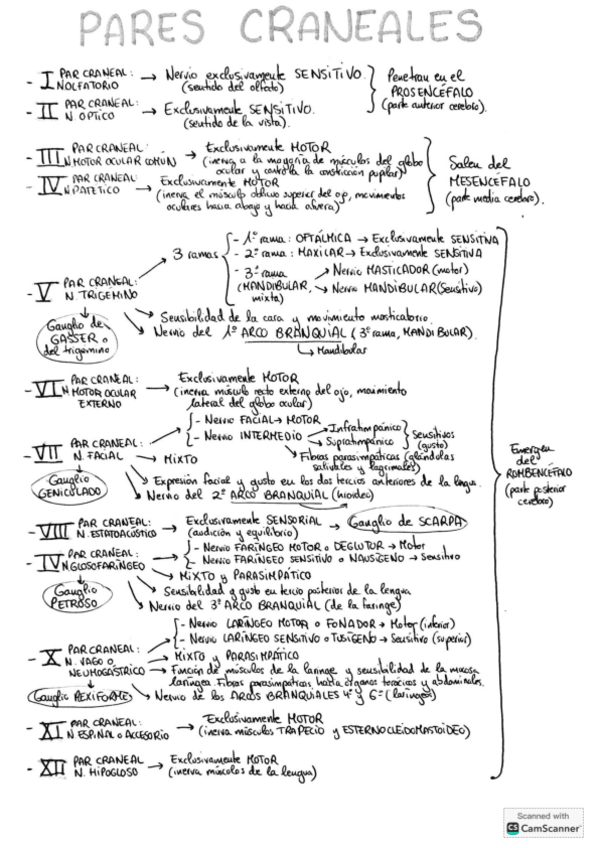 PARES CRANEALES
- I PAR CRANEAL: → Nervio exclusivamente SENSITIVO.
N OLFATORIO (sentido del olfato)
- II PAR CRANEAL: → Exclusivamente SENSITIVO.
N OPTICO (sentido de la vista).
Penetran en el
PROSENCÉFALO
(parte anterior cerebro).
- III PAR CRANEAL: → Exclusivamente MOTOR
N MOTOR OCULAR COMÚN (inerva a la mayoría de músculos del globo
ocular y controla la constricción pupilar)
- IV PAR CRANEAL → Exclusivamente MOTOR
N PATÉTICO (inerva el músculo oblicuo superior del ojo, movimientos
oculares hacia abajo y hacia afuera)
Salen del
MESENCÉFALO
(parte media cerebro).
- V PAR CRANEAL:
N. TRIGEMINO
3 ramas
- 1ª rama: OFTÁLMICA → Exclusivamente SENSITIVA
- 2ª rama: MAXILAR → Exclusivamente SENSITIVA
- 3ª rama → Nervio MASTICADOR (motor)
(MANDIBULAR, → Nervio MANDIBULAR (Sensitivo)
mixta)
→ Sensibilidad de la cara y movimiento masticatorio.
→ Nervio del 1º ARCO BRANQUIAL (3ª rama, MANDIBULAR).
↳ Mandibular
Ganglio de
GASSER o
del trigémino
- VI PAR CRANEAL: → Exclusivamente MOTOR
N MOTOR OCULAR (inerva músculo recto externo del ojo, movimiento
EXTERNO lateral del globo ocular)
- VII PAR CRANEAL:
N. FACIAL
- Nervio FACIAL → MOTOR
- Nervio INTERMEDIO → Infratimpánico
→ Supratimpánico
Sensitivos
(gusto)
→ Fibras parasimpáticas (glándulas
salivales y lagrimales)
→ MIXTO
→ Expresión facial y gusto en los dos tercios anteriores de la lengua.
→ Nervio del 2º ARCO BRANQUIAL (hioideo)
Ganglio
GENICULADO
- VIII PAR CRANEAL: → Exclusivamente SENSORIAL → Ganglio de SCARPA
N. ESTATOACÚSTICO (audición y equilibrio)
- IX PAR CRANEAL:
N GLOSOFARÍNGEO
- Nervio FARÍNGEO MOTOR o DEGLUTOR → Motor
- Nervio FARÍNGEO SENSITIVO o NAUSÍGENO → Sensitivo
→ MIXTO Y PARASIMPÁTICO
→ Sensibilidad y gusto en tercio posterior de la lengua
→ Nervio del 3º ARCO BRANQUIAL (de la faringe)
Ganglio
PETROSO
- X PAR CRANEAL:
N. VAGO o
NEUMOGÁSTRICO
- Nervio LARÍNGEO MOTOR o FONADOR → Motor (inferior)
- Nervio LARÍNGEO SENSITIVO o TUSÍGENO → Sensitivo (superior)
→ MIXTO Y PARASIMPÁTICO
→ Función de músculos de la laringe y sensibilidad de la mucosa
laríngea. Fibras parasimpáticas hacia órganos torácicos y abdominales.
→ Nervio de los ARCOS BRANQUIALES 4º y 6º (laríngeos)
Ganglio PLEXIFORME
- XI PAR CRANEAL: → Exclusivamente MOTOR
N ESPINAL o ACCESORIO (inerva músculos TRAPECIO y ESTERNOCLEIDOMASTOIDEO)
- XII PAR CRANEAL → Exclusivamente MOTOR
N. HIPOGLOSO (inerva músculos de la lengua)
Emergen
del
ROMBENCÉFALO
(parte posterior
cerebro)
Scanned with
CS CamScanner